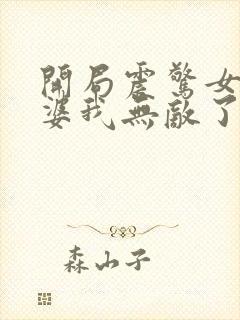 開局震驚女
婆我無敵了
森山子